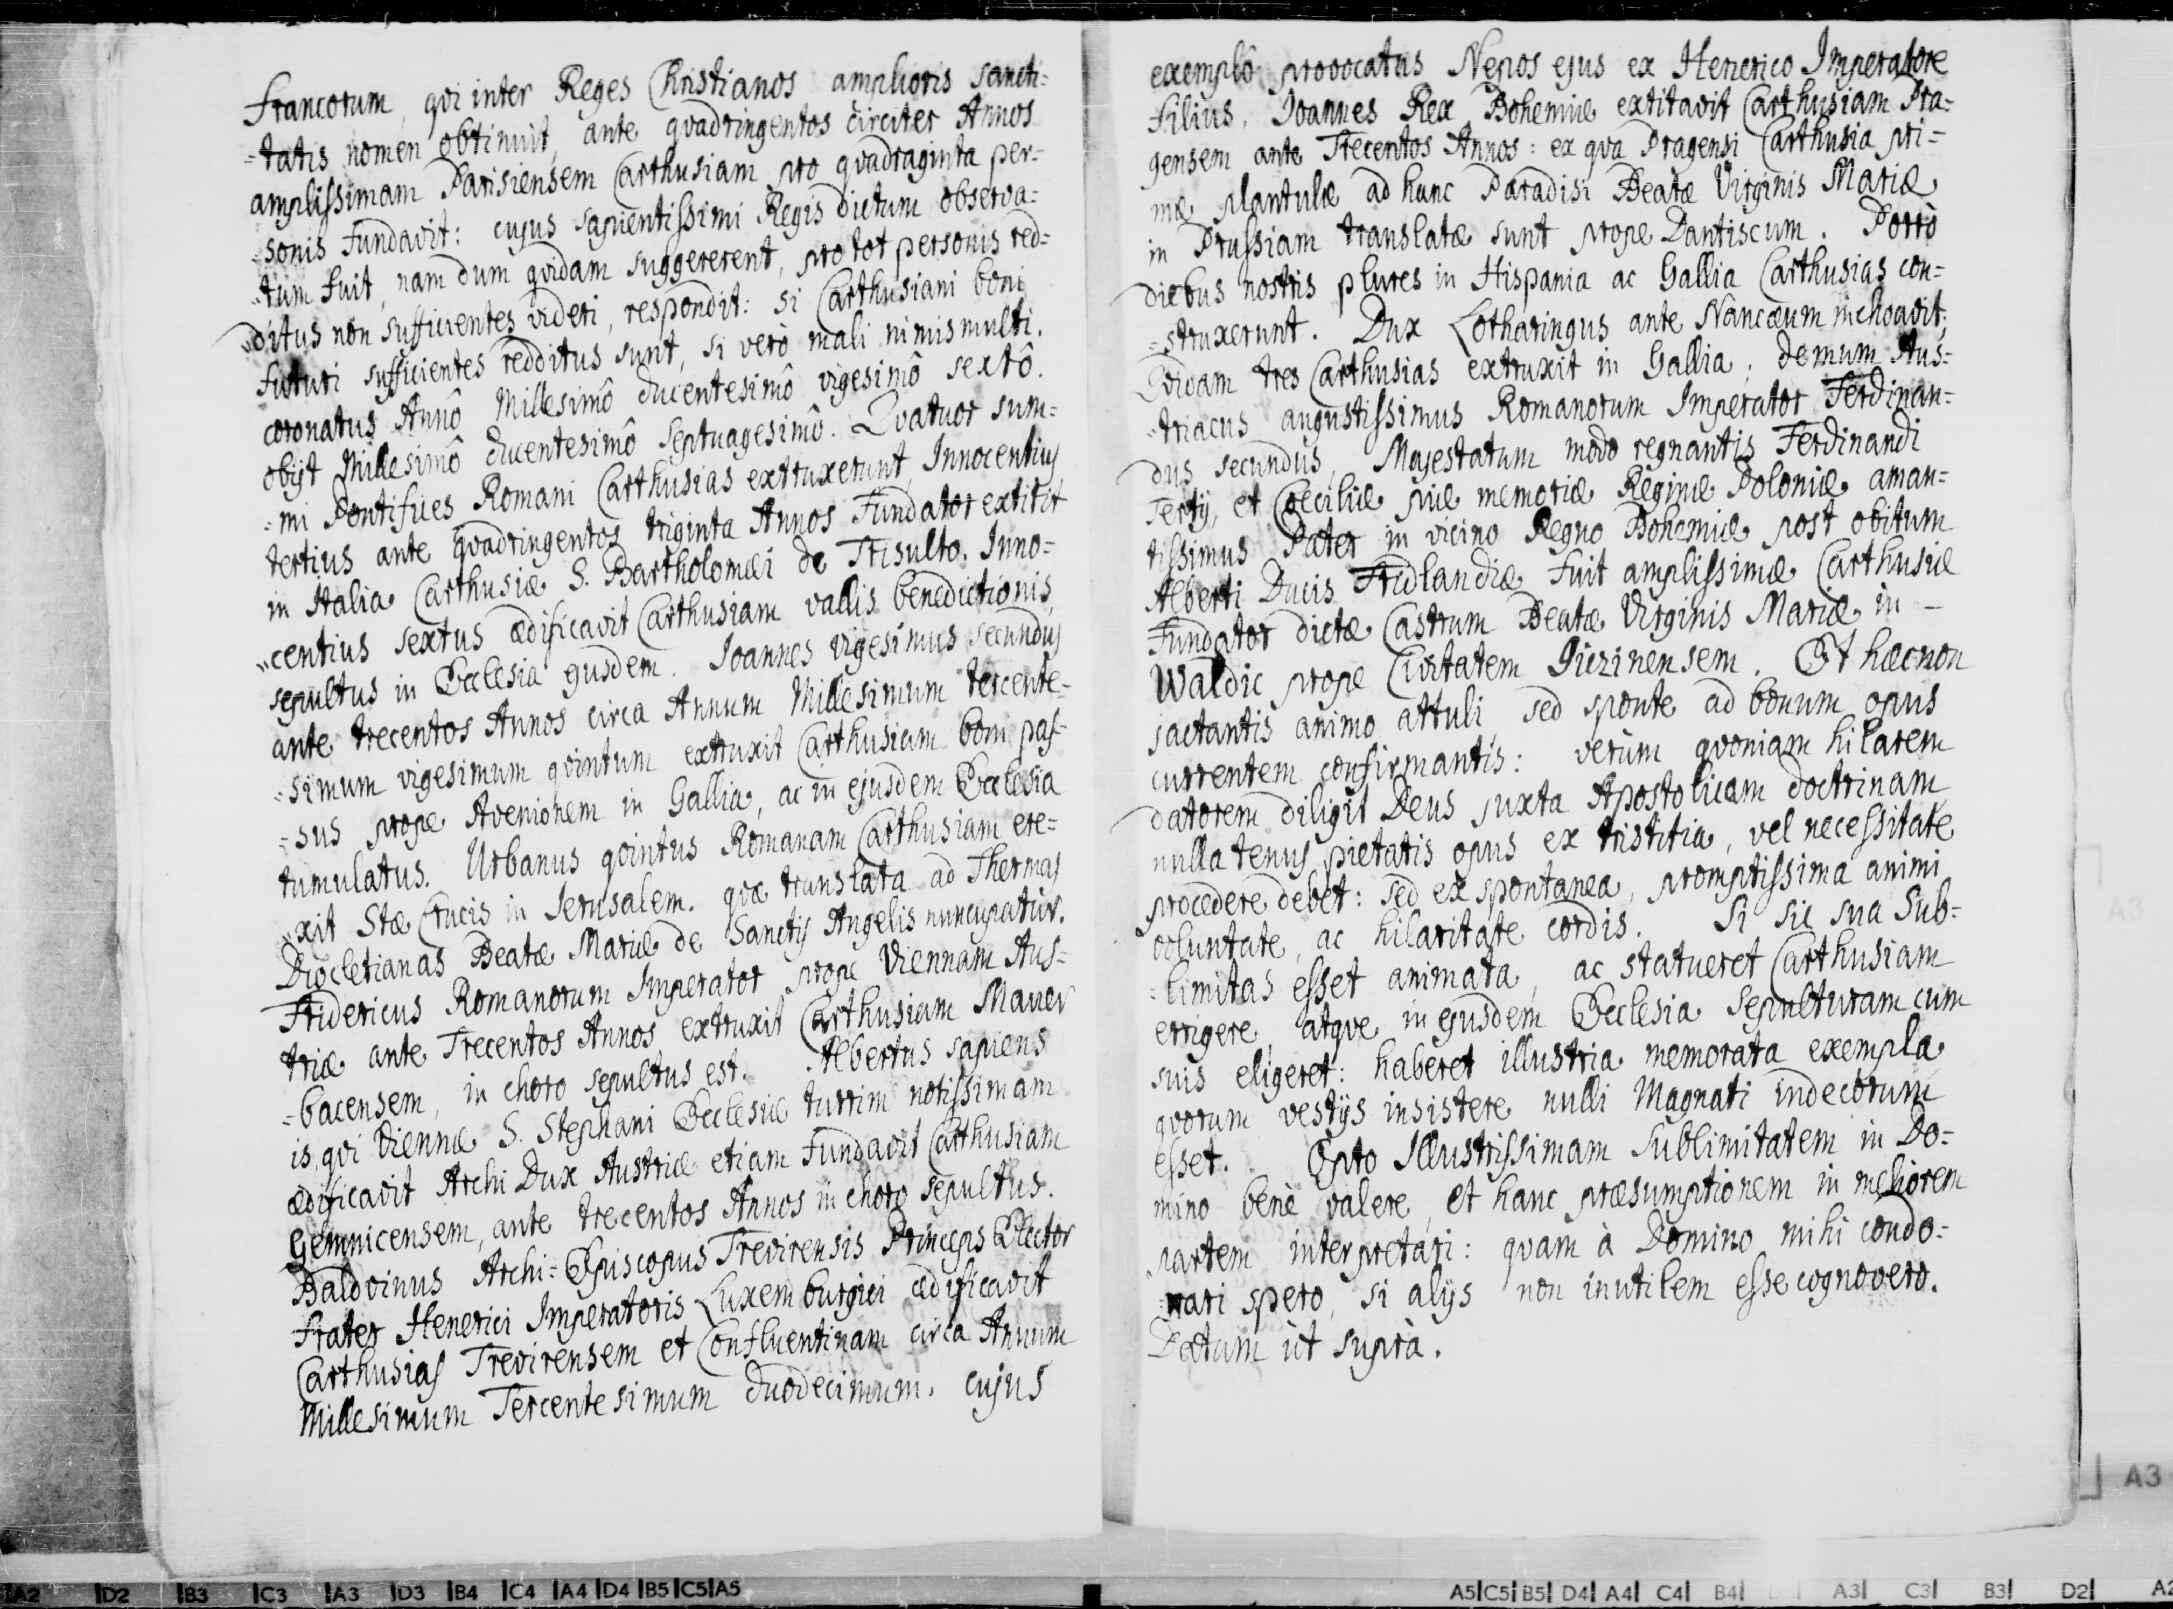 Francorum, qvi inter Reges Christianos amplioris sancti=
=tatis nomen obtinuit, ante qvadringentos circiter Annos
amplissimam Parisiensem Carthusiam pro qvadraginta per=
=sonis Fundavit: cujus sapientissimi Regis dictum observa=
=tum Fuit, nam dum qvidam suggererent, pro tot personis red=
=ditus non sufficientes videri, respondit: si Carthusiani boni
Futuri sufficientes redditus sunt, si verò mali nimis multi.
coronatus Annô Millesimô ducentesimô vigesimô sextô.
obijt Millesimô ducentesimô septuagesimô. Qvatuor sum=
=mi Pontifices Romani Carthusias extruxerunt, Innocentius
tertius ante qvadringentos triginta Annos Fundator extitit
in Italia Carthusiæ S. Bartholomæi de Trisulto. Inno=
=centius sextus ædificavit Carthusiam vallis benedictionis,
sepultus in Ecclesia ejusdem. Joannes vigesimus secundus
ante trecentos Annos circa Annum Millesimum tercente=
=simum vigesimum qvintum extruxit Carthusiam boni pas=
=sus prope Avenionem in Gallia, ac in ejusdem Ecclesia
tumulatus. Urbanus qvintus Romanam Carthusiam ere=
=xit Stæ Crucis in Jerusalem. qvæ translata ad Thermas
Diocletianas Beatæ Mariæ de Sanctis Angelis nuncupatur.
Fridericus Romanorum Imperator prope Viennam Aus=
triæ ante Trecentos Annos extruxit Carthusiam Mauer
=bacensem, in choro sepultus est. Albertus sapiens
is, qvi Viennæ S. Stephani Ecclesiæ turrim notissimam
ædificavit Archi Dux Austriæ etiam Fundavit Carthusiam
Gemnicensem, ante trecentos Annos in choro sepultus.
Baldvinus Archi=Episcopus Trevirensis Princeps Elector
Frater Henerici Imperatoris Luxemburgici ædificavit
Carthusias Trevirensem et Confluentinam circa Annum
Millesimum Tercentesimum duodecimum. cujus
exemplô provocatus Nepos ejus ex Henerico Imperatore
Filius, Joannes Rex Bohemiæ extitavit Carthusiam Pra=
gensem ante Trecentos Annos: ex qva Pragensi Carthusia pri=
mæ plantulæ ad hunc Paradisi Beatæ Virginis Mariæ
in Prussiam translatæ sunt prope Dantiscum. Porrò
diebus nostris plures in Hispania ac Gallia Carthusias con=
=struxerunt. Dux Lotharingus ante Nancæum inchoavit;
Qvidam tres Carthusias extruxit in Gallia; demum Aus=
=triacus augustissimus Romanorum Imperator Ferdinan=
dus secundus, Majestatum modo regnantis Ferdinandi
Tertij, et Cæciliæ piæ memoriæ Reginæ Poloniæ aman=
tissimus Pater in vicino Regno Bohemiæ post obitum
Alberti Ducis Fridlandiæ Fuit amplissimæ Carthusiæ
Fundator dictæ Castrum Beatæ Virginis Mariæ in –
Waldic prope Civitatem Giczinensem. Et hæc non
jactantis animo attuli, sed sponte ad bonum opus
currentem confirmantis: verùm qvoniam hilarem
datorem diligit Deus juxta Apostolicam doctrinam
nulla tenus pietatis opus ex tristitia, vel necessitate
procedere debet: sed ex spontanea, promptissima animi
voluntate, ac hilaritate cordis. Si sic sua Sub=
=limitas esset animata, ac statueret Carthusiam
errigere, atqve in ejusdem Ecclesia Sepulturam cum
suis eligeret: haberet illustria memorata exempla
qvorum vestijs insistere nulli Magnati indecorum
esset. Opto Illustrissimam Sublimitatem in Do=
mino benè valere, et hanc præsumptionem in meliorem
partem interpretari: qvam à Domino mihi condo=
=nari spero, si alijs non inutilem esse cognovero.
Datum ùt suprà.
A2 D2 B3 C3 A3 D3 B4 C4 A4 D4 B5 C5 A5
A5 C5 B5 D4 A4 C4 B4 A3 C3 B3 D2 A2
A3
A3